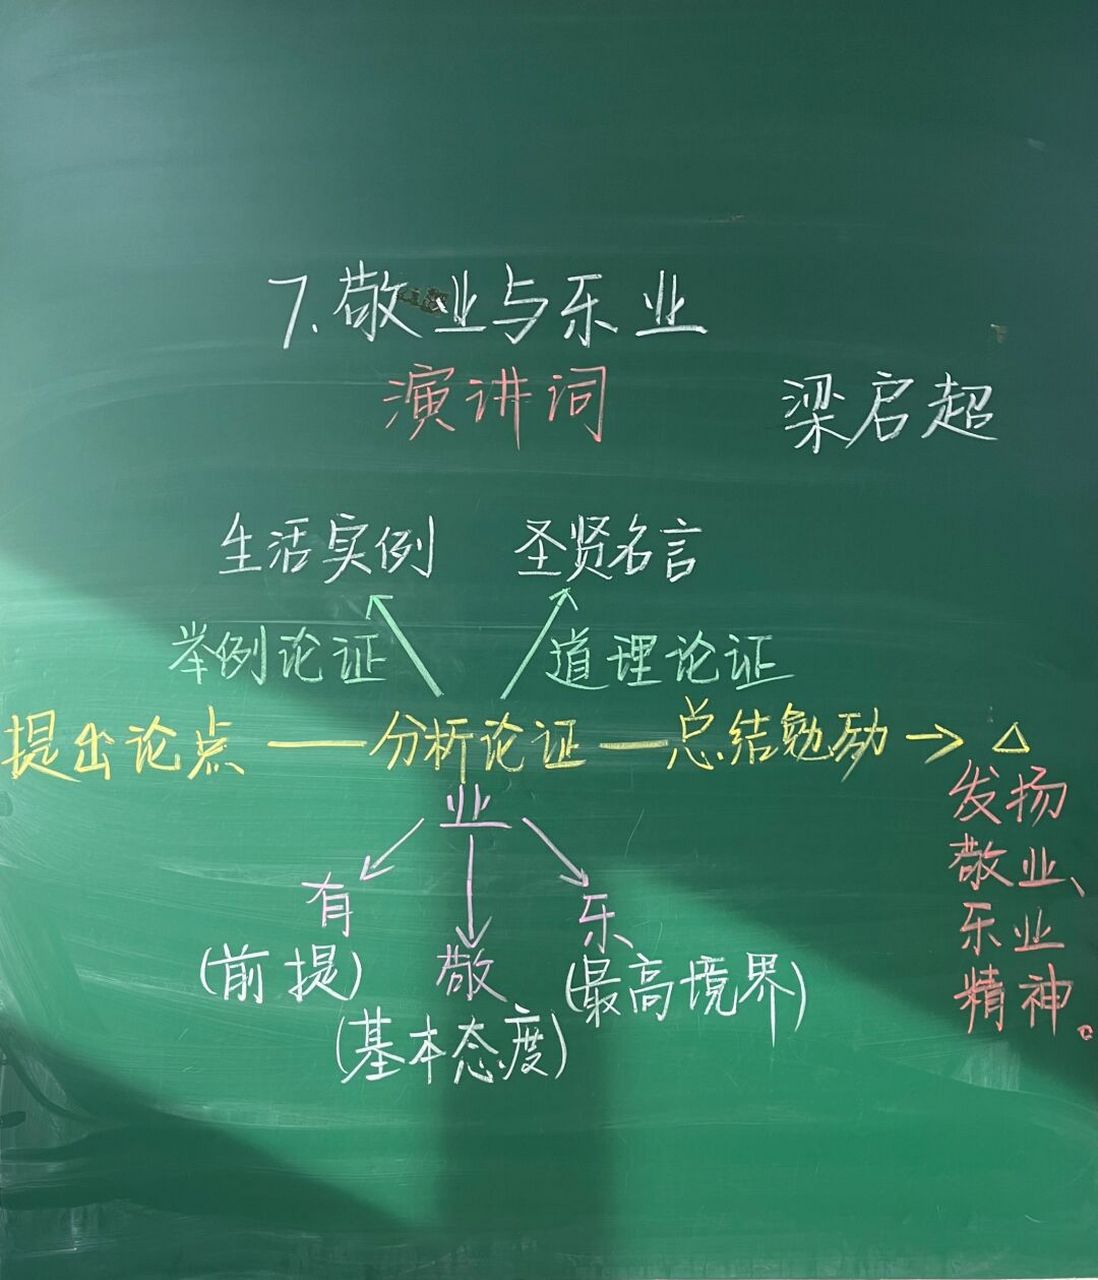 7.敬业与乐业
演讲词 梁启超
生活实例 圣贤名言
举例论证 道理论证
提出论点—分析论证—总结勉励→△
业
有 敬 乐
(前提) (基本态度) (最高境界)
发扬
敬业、
乐业
精神。